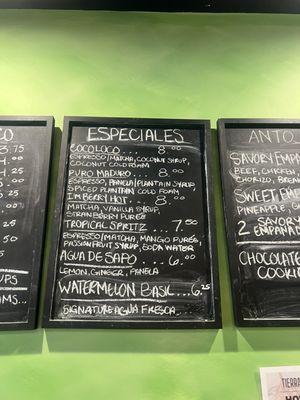 CO
3.75
ESPECIALES
COCOLOCO... 8.00
ESPRESSO/MATCHA, COCONUT SYRUP,
COCONUT COLD FOAM
PURO MADURO... 8.00
ESPRESSO, PANELA/PLANTAIN SYRUP
SPICED PLANTAIN COLD FOAM
I'M BERRY HOT.. 8.00
MATCHA, VANILLA SYRUP,
STRAWBERRY PURÉE
TROPICAL SPRITZ... 7.50
ESPRESSO/MATCHA, MANGO PURÉE,
PASSIONFRUIT SYRUP, SODA WATER
AGUA DE SAPO... 6.00
LEMON, GINGER, PANELA
WATERMELON BASIL... 6.25
SIGNATURE AGUA FRESCA
UPS
MS...
ANTO
SAVORY EMP
BEEF, CHICKEN
CHORIZO, BREA
SWEET EM
PINEAPPLE, G
2 SAVORY
EMPANA
CHOCOLATE
COOKIE
TIERRA